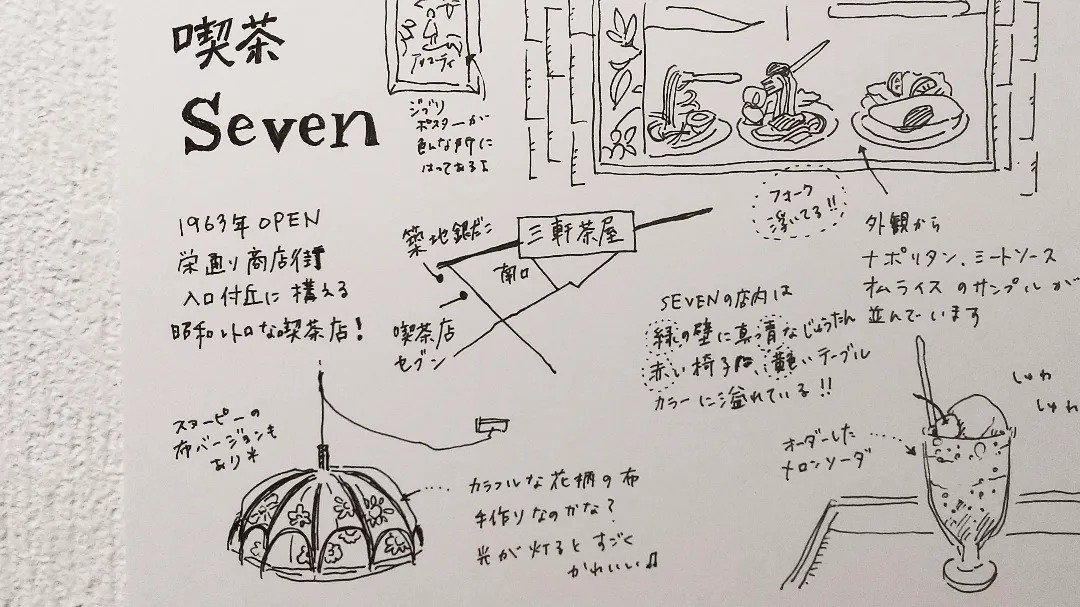 喫茶
Seven
アリエッティ
ジブリ
ポスターが
色んな所に
はってあるよ
フォーク
浮いてる!!
1963年 OPEN
栄通り商店街
入口付近に構える
昭和レトロな喫茶店!
築地銀だこ
三軒茶屋
南口
喫茶店
セブン
外観から
ナポリタン、ミートソース
オムライスのサンプルが
並んでいます
SEVENの店内は
緑の壁に真っ青なじゅうたん
赤い椅子に、黄色いテーブル
カラーに溢れている!!
スヌーピーの
布バージョンも
あり
カラフルな花柄の布
手作りなのかな?
光が灯るとすごく
かわいい♫
オーダーした
メロンソーダ
しゅわ
しゅわ